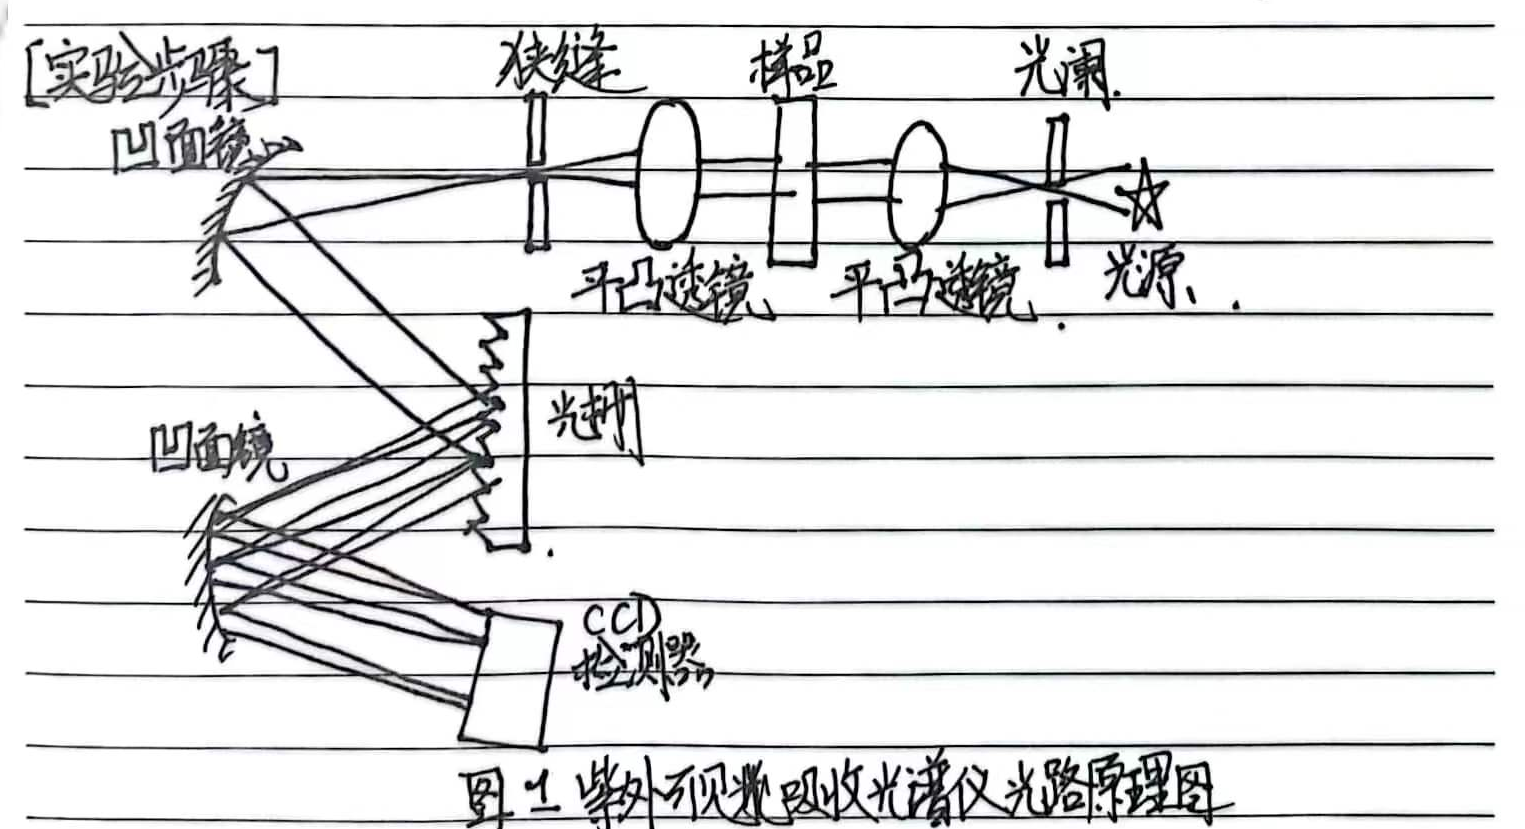 [实验步骤]
狭缝 样品 光阑.
凹面镜
平凸透镜 平凸透镜. 光源.
光栅
凹面镜
CCD
检测器
图1 紫外可见光吸收光谱仪光路原理图